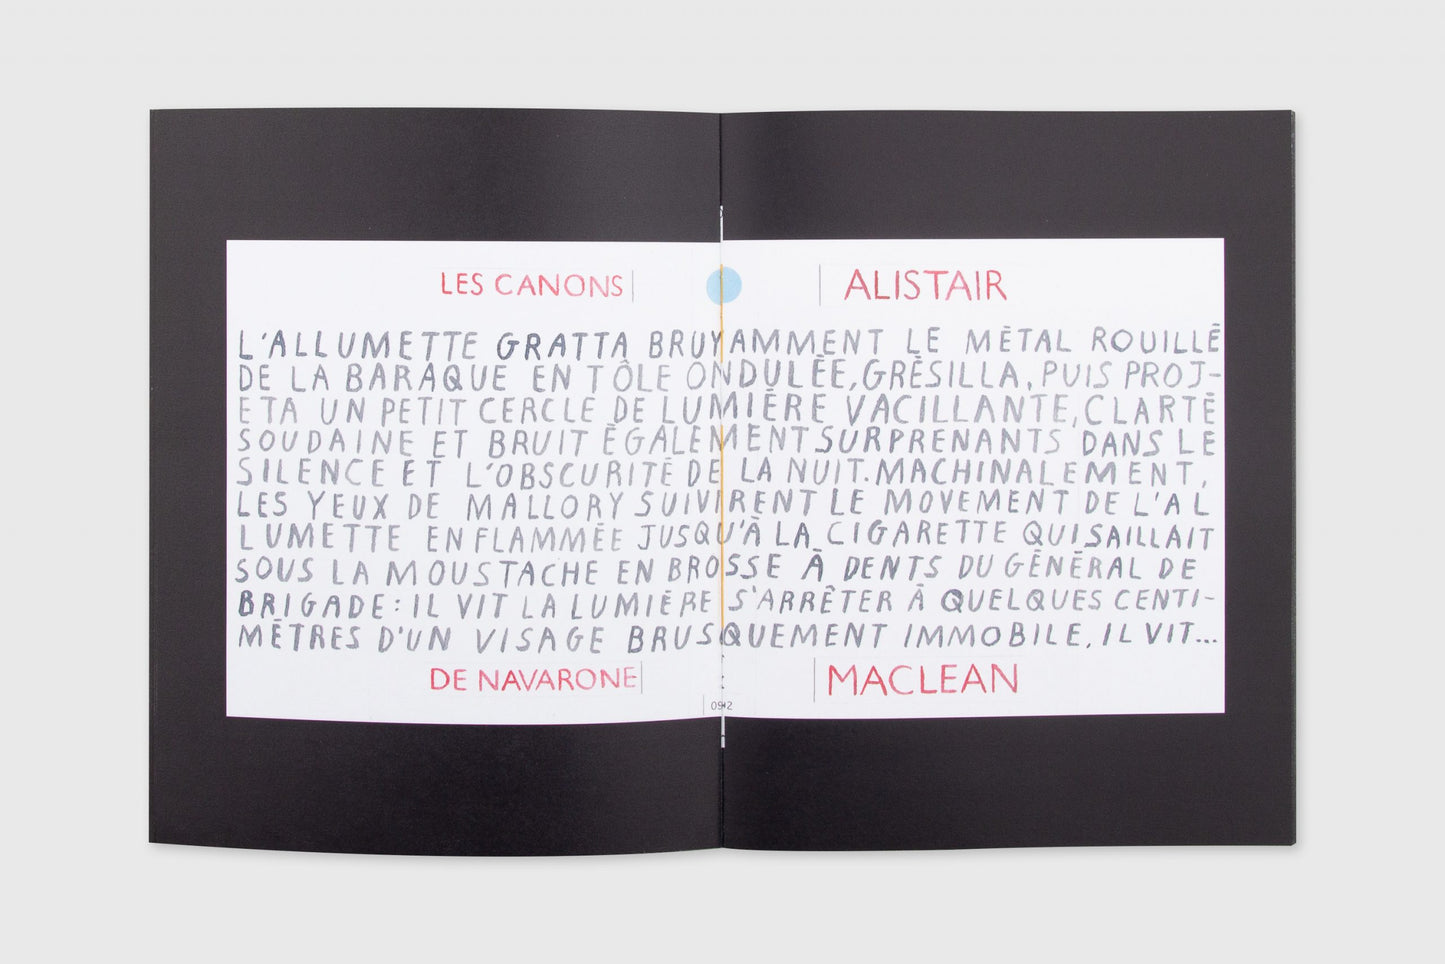 LES CANONS ALISTAIR
L'ALLUMETTE GRATTA BRUYAMMENT LE MÉTAL ROUILLÉ
DE LA BARAQUE EN TÔLE ONDULÉE, GRÉSILLA, PUIS PROJ-
ETA UN PETIT CERCLE DE LUMIÈRE VACILLANTE, CLARTÉ
SOUDAINE ET BRUIT ÉGALEMENT SURPRENANTS DANS LE
SILENCE ET L'OBSCURITÉ DE LA NUIT. MACHINALEMENT,
LES YEUX DE MALLORY SUIVIRENT LE MOVEMENT DE L'AL
LUMETTE ENFLAMMÉE JUSQU'À LA CIGARETTE QUI SAILLAIT
SOUS LA MOUSTACHE EN BROSSE À DENTS DU GÉNÉRAL DE
BRIGADE: IL VIT LA LUMIÈRE S'ARRÊTER À QUELQUES CENTI-
MÈTRES D'UN VISAGE BRUSQUEMENT IMMOBILE, IL VIT...
DE NAVARONE MACLEAN